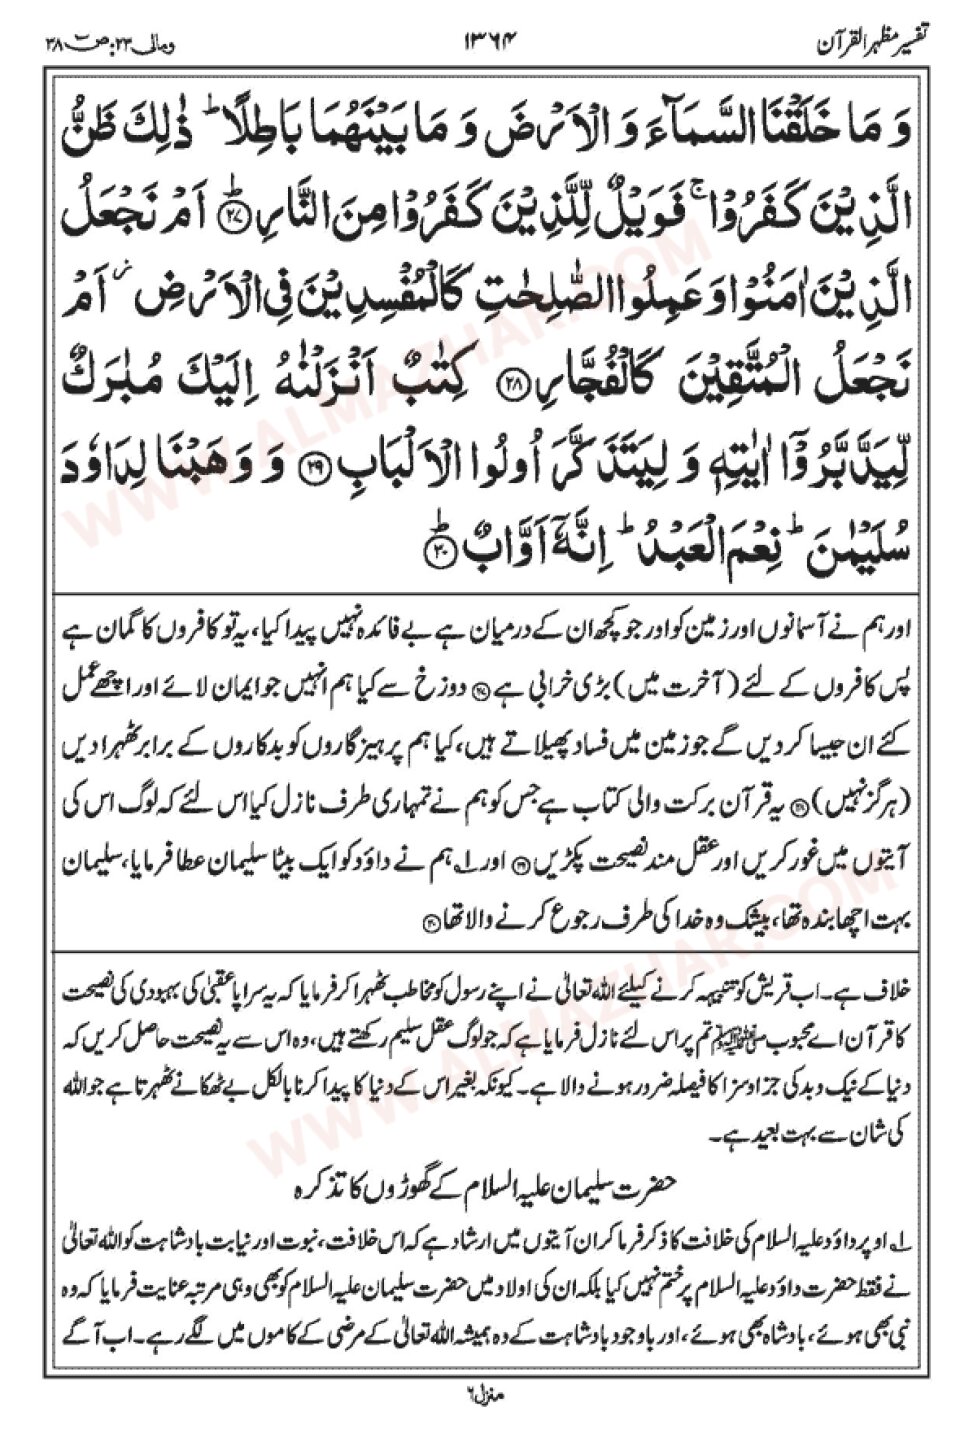 تفسیر مظہر القرآن ۱۳۶۴ ومالی ۲۳: ص ۳۸
وَمَا خَلَقْنَا السَّمَآءَ وَالْاَرْضَ وَمَا بَيْنَهُمَا بَاطِلًا ؕ ذٰلِكَ ظَنُّ
الَّذِيْنَ كَفَرُوْا ۚ فَوَيْلٌ لِّلَّذِيْنَ كَفَرُوْا مِنَ النَّارِ ؕ ۲۷ اَمْ نَجْعَلُ
الَّذِيْنَ اٰمَنُوْا وَعَمِلُوا الصّٰلِحٰتِ كَالْمُفْسِدِيْنَ فِي الْاَرْضِ ؗ اَمْ
نَجْعَلُ الْمُتَّقِيْنَ كَالْفُجَّارِ ۲۸ كِتٰبٌ اَنْزَلْنٰهُ اِلَيْكَ مُبٰرَكٌ
لِّيَدَّبَّرُوْٓا اٰيٰتِهٖ وَلِيَتَذَكَّرَ اُولُوا الْاَلْبَابِ ۲۹ وَوَهَبْنَا لِدَاوٗدَ
سُلَيْمٰنَ ؕ نِعْمَ الْعَبْدُ ؕ اِنَّهٗٓ اَوَّابٌ ؕ ۳۰
اور ہم نے آسمانوں اور زمین کو اور جو کچھ ان کے درمیان ہے بے فائدہ نہیں پیدا کیا، یہ تو کافروں کا گمان ہے
پس کافروں کے لئے (آخرت میں) بڑی خرابی ہے ۲۷ دوزخ سے کیا ہم انہیں جو ایمان لائے اور اچھے عمل
کئے ان جیسا کر دیں گے جو زمین میں فساد پھیلاتے ہیں، کیا ہم پرہیزگاروں کو بدکاروں کے برابر ٹھہرا دیں
(ہرگز نہیں) ۲۸ یہ قرآن برکت والی کتاب ہے جس کو ہم نے تمہاری طرف نازل کیا اس لئے کہ لوگ اس کی
آیتوں میں غور کریں اور عقل مند نصیحت پکڑیں ۲۹ اور ۱؎ ہم نے داؤد کو ایک بیٹا سلیمان عطا فرمایا، سلیمان
بہت اچھا بندہ تھا، بیشک وہ خدا کی طرف رجوع کرنے والا تھا ۳۰
خلاف ہے۔ اب قریش کو تنبیہہ کرنے کیلئے اللہ تعالیٰ نے اپنے رسول کو مخاطب ٹھہرا کر فرمایا کہ یہ سراپا عقبیٰ کی بہبودی کی نصیحت
کا قرآن اے محبوب ﷺ تم پر اس لئے نازل فرمایا ہے کہ جو لوگ عقل سلیم رکھتے ہیں، وہ اس سے یہ نصیحت حاصل کریں کہ
دنیا کے نیک و بد کی جزا و سزا کا فیصلہ ضرور ہونے والا ہے۔ کیونکہ بغیر اس کے دنیا کا پیدا کرنا بالکل بے ٹھکانے ٹھہرتا ہے جو اللہ
کی شان سے بہت بعید ہے۔
حضرت سلیمان علیہ السلام کے گھوڑوں کا تذکرہ
۱؎ اوپر داؤد علیہ السلام کی خلافت کا ذکر فرما کر ان آیتوں میں ارشاد ہے کہ اس خلافت، نبوت اور نیابت بادشاہت کو اللہ تعالیٰ
نے فقط حضرت داؤد علیہ السلام پر ختم نہیں کیا بلکہ ان کی اولاد میں حضرت سلیمان علیہ السلام کو بھی وہی مرتبہ عنایت فرمایا کہ وہ
نبی بھی ہوئے، بادشاہ بھی ہوئے، اور باوجود بادشاہت کے وہ ہمیشہ اللہ تعالیٰ کے مرضی کے کاموں میں لگے رہے۔ اب آگے
منزل ۶
WWW.ALMAZHAR.COM
WWW.ALMAZHAR.COM